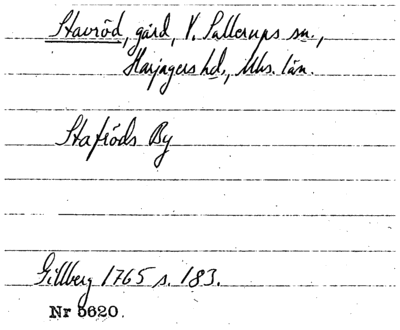 Stavröd, gård, V. Sallerups sn.,
Harjagers hd., Mhs. län.
Stafröds By
Gillberg 1765 s. 183.
Nr 5620.